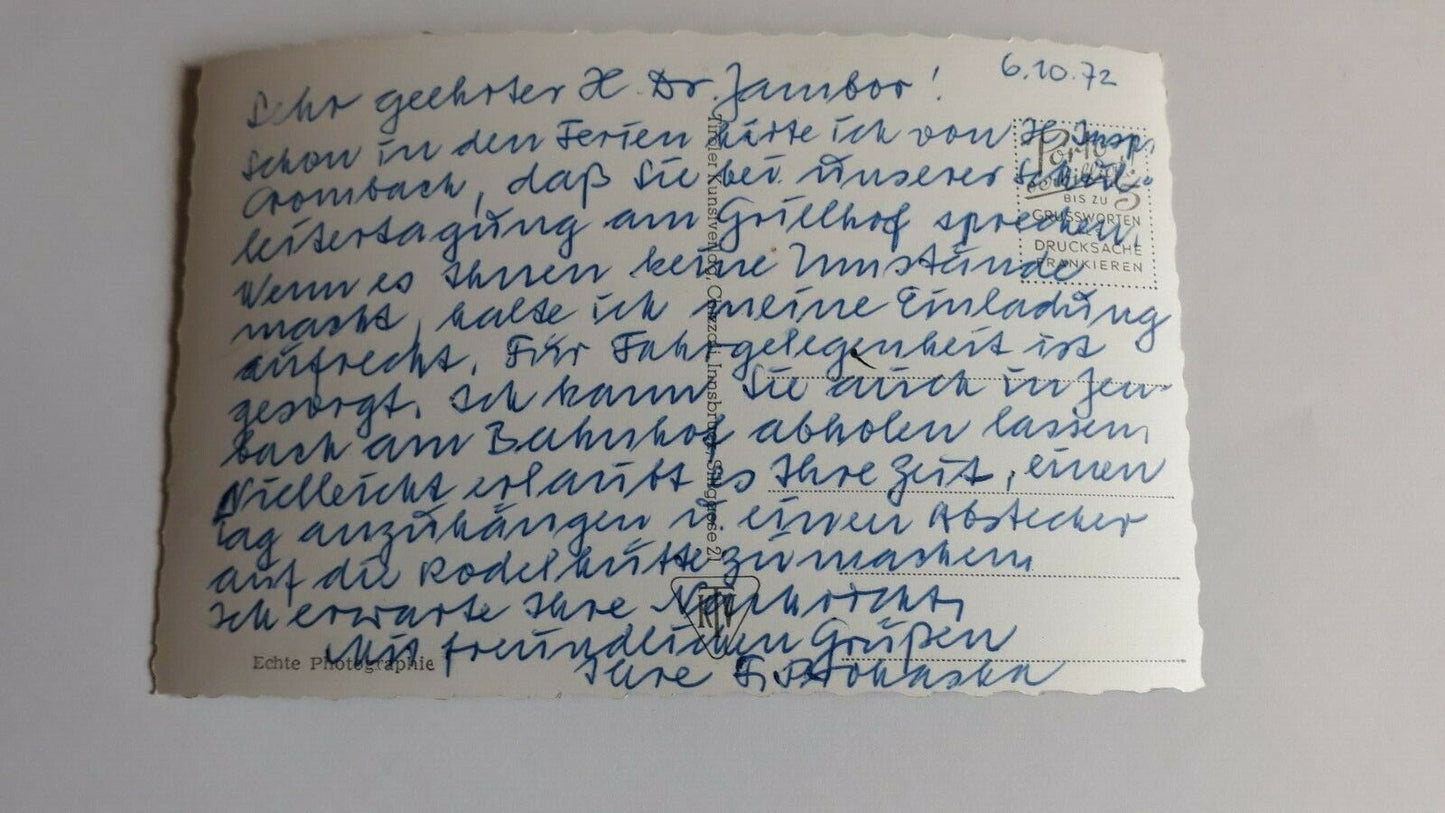 6.10.72
Sehr geehrter H. Dr. Jambor!
Schon in den Ferien hörte ich von H. Insp.
Crombach, daß Sie bei unserer Schul-
leitertagung am Grillhof sprechen.
Wenn es Ihnen keine Umstände
macht, halte ich meine Einladung
aufrecht. Für Fahrgelegenheit ist
gesorgt. Ich kann Sie auch in Jen-
bach am Bahnhof abholen lassen.
Vielleicht erlaubt es Ihre Zeit, einen
Tag anzuhängen u. einen Abstecher
auf die Rodelhütte zu machen.
Ich erwarte Ihre Nachricht.
Mit freundlichen Grüßen
Ihre F. Prohaska
Porto
BIS ZU
GRUSSWORTEN
DRUCKSACHE
FRANKIEREN
Tiroler Kunstverlag, Chizzali, Innsbruck, Sillgasse 21
RTV
Echte Photographie